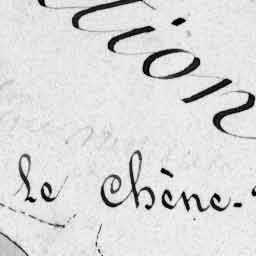 tion
Le Chêne-